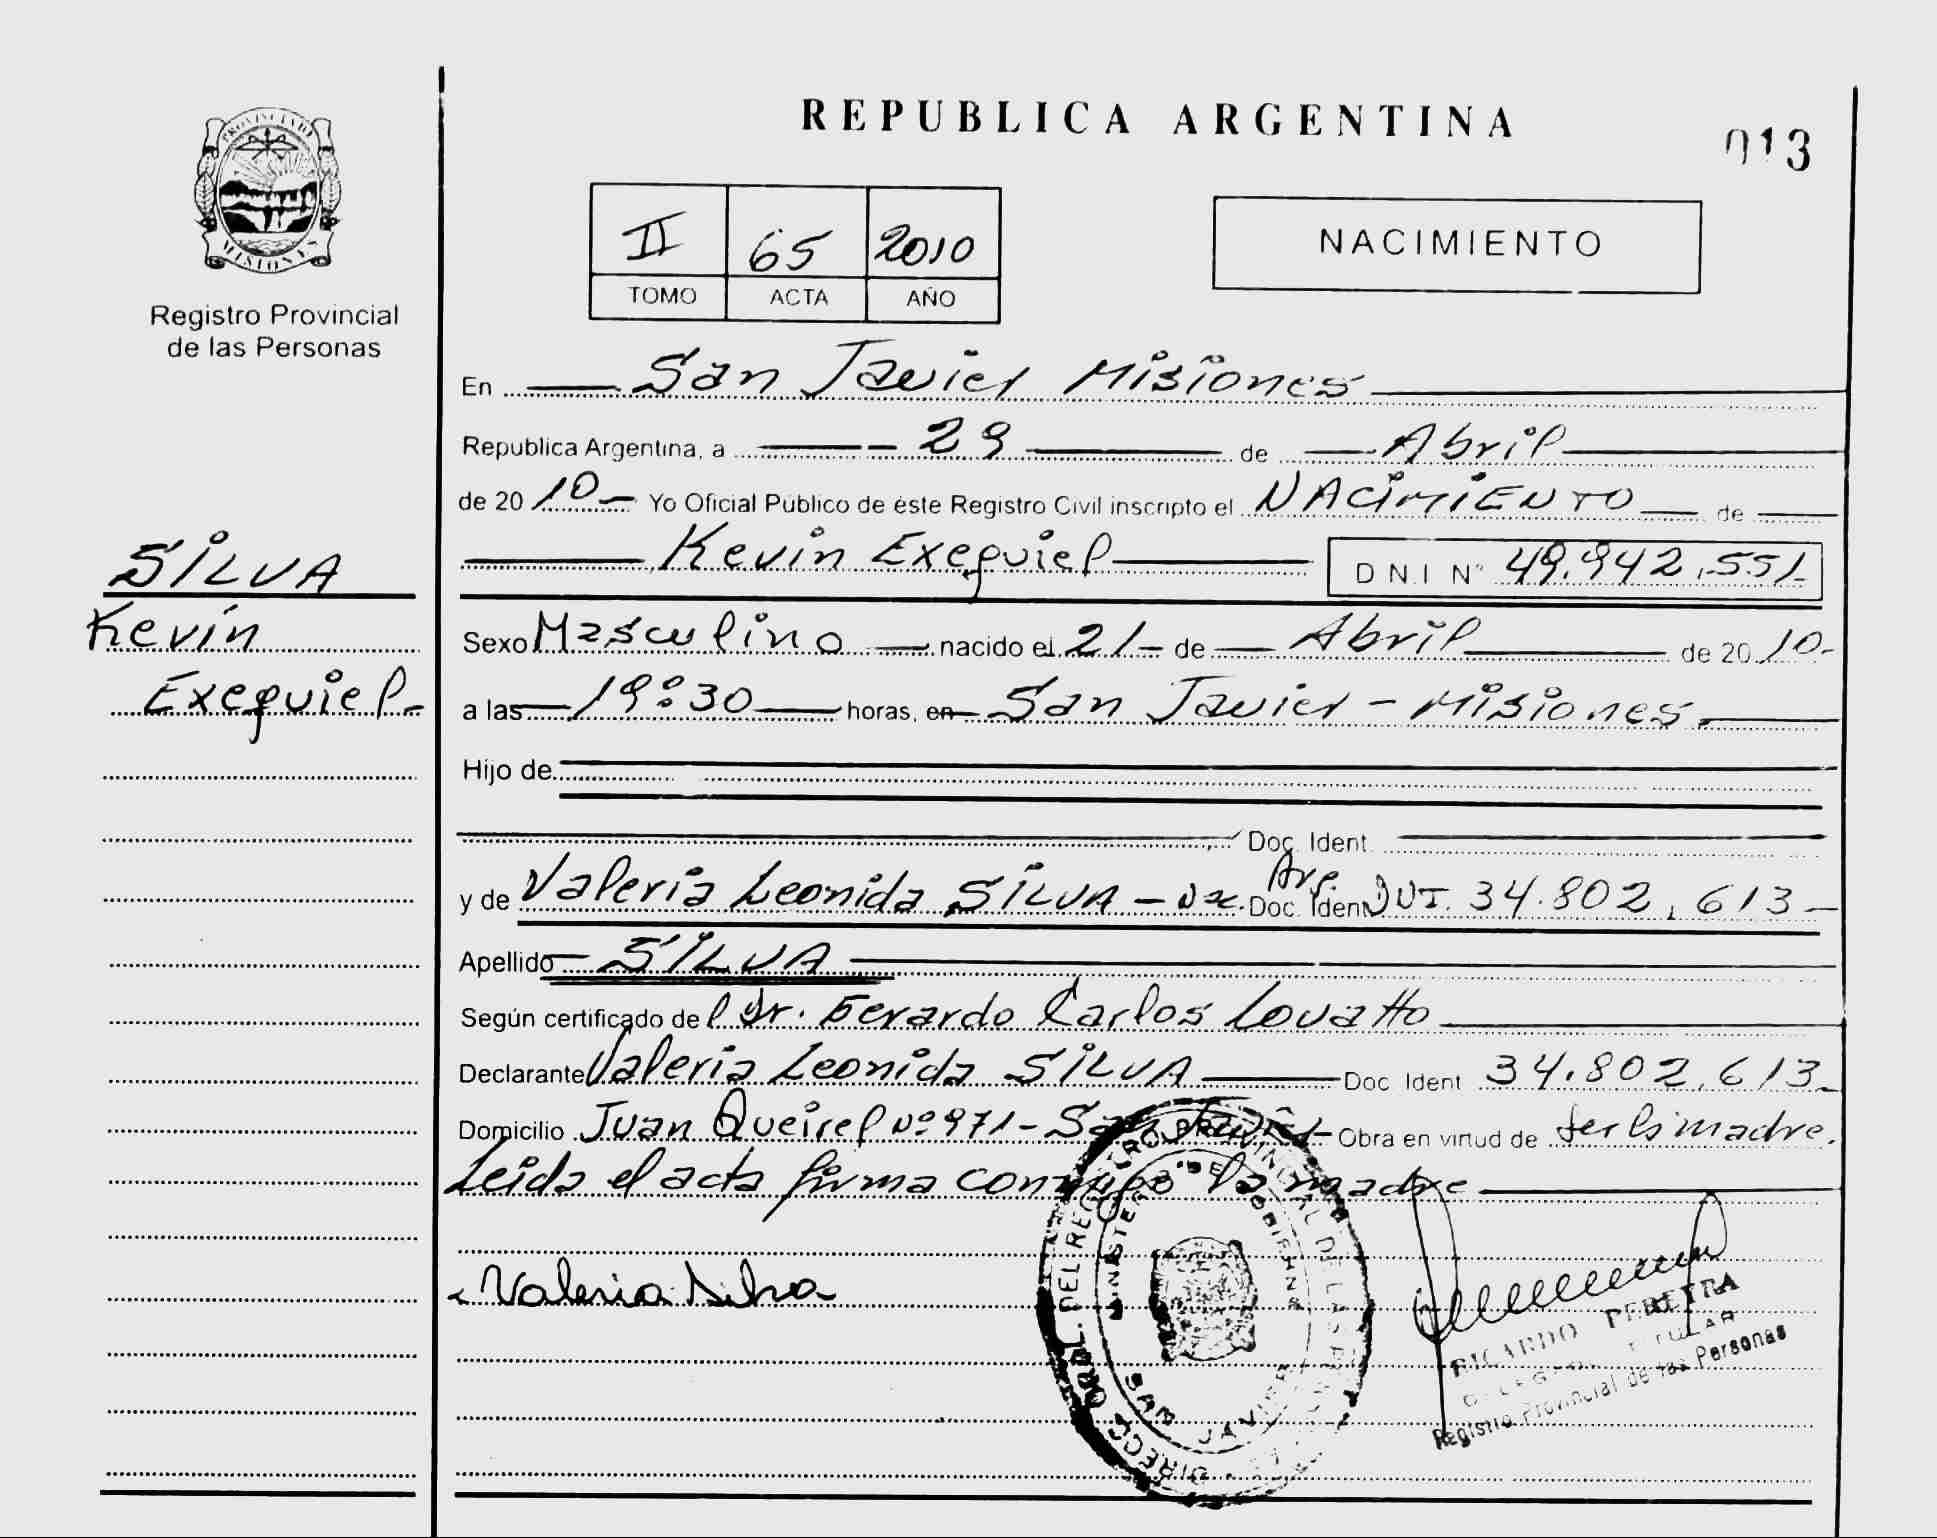 REPUBLICA ARGENTINA
013
PROVINCIA DE
MISIONES
Registro Provincial
de las Personas
II 65 2010
TOMO ACTA AÑO
NACIMIENTO
En San Javier Misiones
Republica Argentina, a 29 de Abril
de 20 10- Yo Oficial Público de éste Registro Civil inscripto el NACIMIENTO de
Kevin Exequiel DNI N° 49.942.551-
SILVA
Kevin
Exequiel-
Sexo Masculino nacido el 21- de Abril de 20 10-
a las 19:30 horas, en San Javier - Misiones.
Hijo de
Doc. Ident.
y de Valeria Leonida SILVA - Nac. Arg. Doc. Ident DNI. 34.802.613-
Apellido SILVA
Según certificado de l Dr. Gerardo Carlos Lovatto
Declarante Valeria Leonida SILVA Doc Ident 34.802.613-
Domicilio Juan Queirel Nº 971- San Javier- Obra en virtud de ser la madre.
Leida el acta firma conmigo la madre
Valeria Silva
DIRECC. GRAL. DEL REGISTRO PROVINCIAL DE LAS PERSONAS
MINISTERIO DE GOBIERNO
SAN JAVIER
RICARDO PEREYRA
DELEGADO TITULAR
Registro Provincial de las Personas